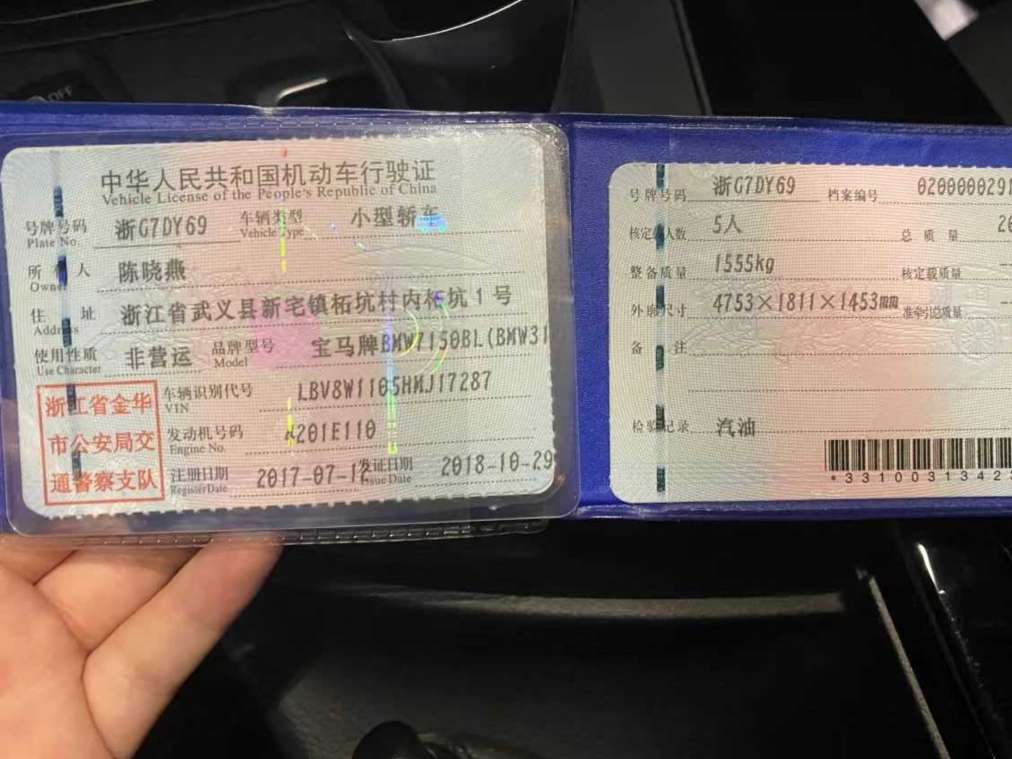 中华人民共和国机动车行驶证
Vehicle License of the People's Republic of China
号牌号码 浙G7DY69 车辆类型 小型轿车
Plate No. Vehicle Type
所有人 陈晓燕
Owner
住址 浙江省武义县新宅镇柘坑村内柘坑1号
Address
使用性质 非营运 品牌型号 宝马牌BMW7150BL(BMW31
Use Character Model
浙江省金华
市公安局交
通警察支队
车辆识别代号 LBV8W1105HMJ17287
VIN
发动机号码 A201E110
Engine No.
注册日期 2017-07-12 发证日期 2018-10-29
Register Date Issue Date
号牌号码 浙G7DY69 档案编号 0200000291
核定载人数 5人 总质量 20
整备质量 1555kg 核定载质量 --
外廓尺寸 4753×1811×1453mm 准牵引总质量 --
备注
检验记录 汽油
*3310031342
OFF